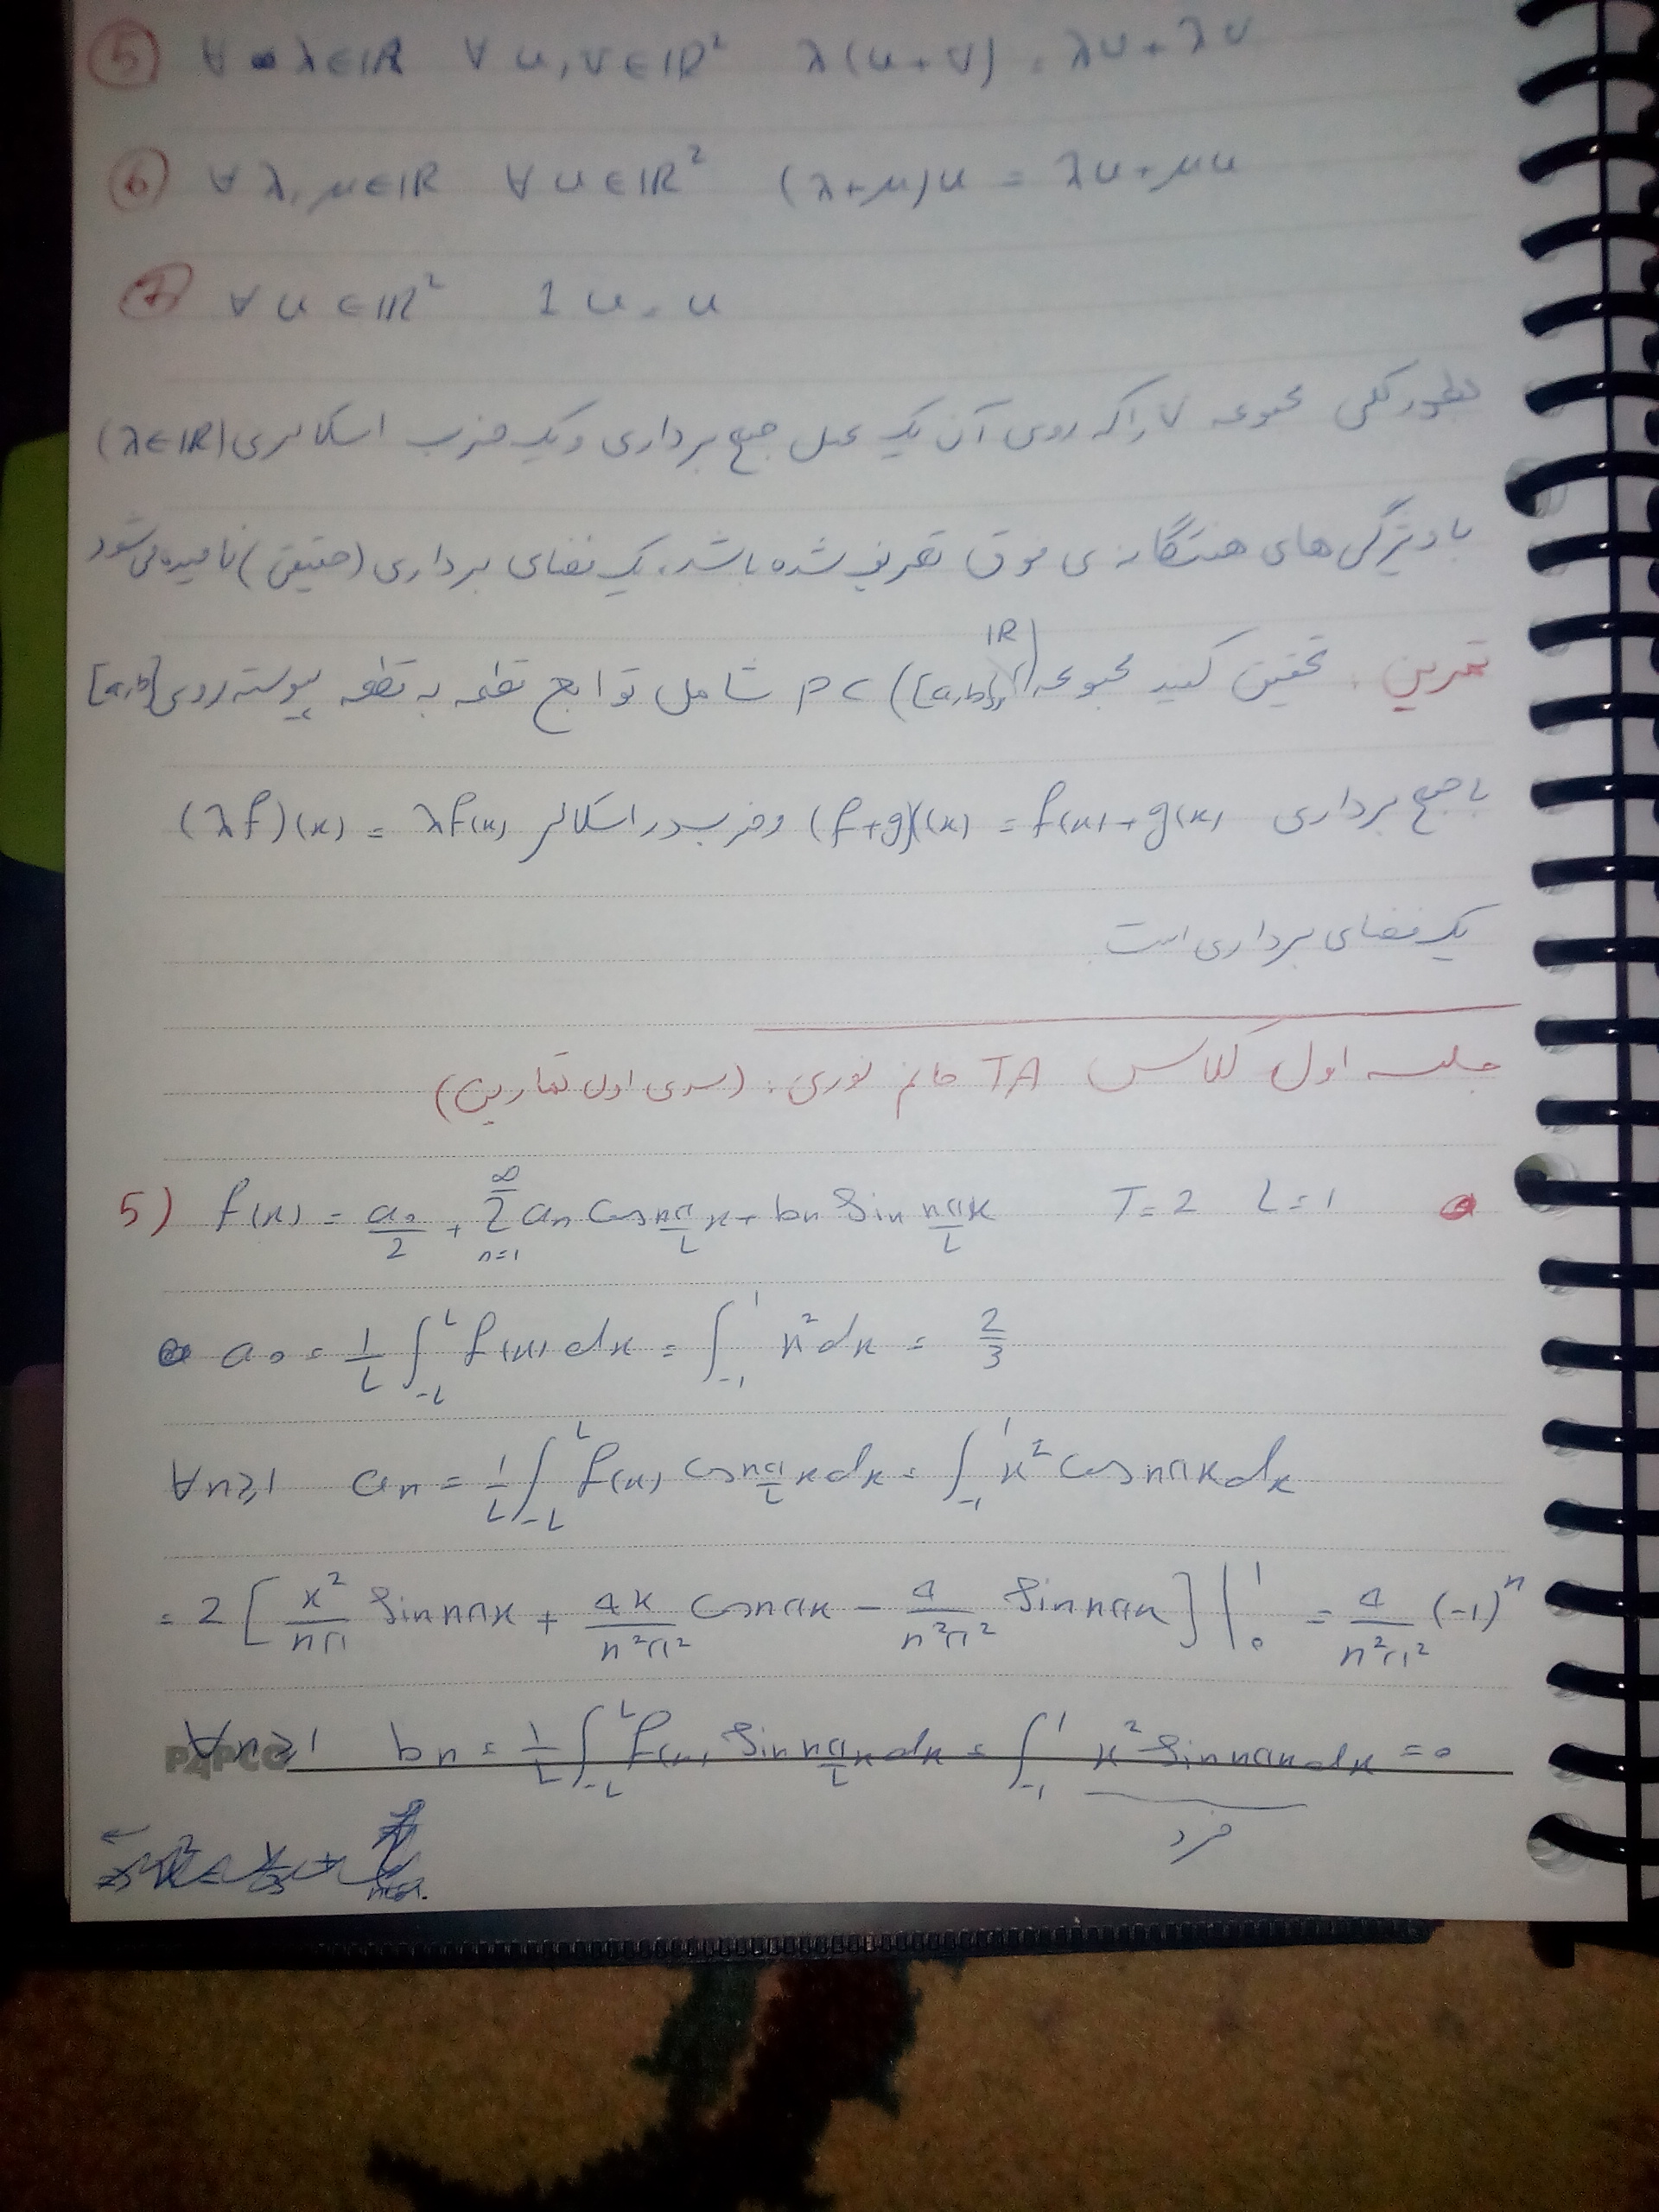 ⑤ ∀ λ∈ℝ ∀ u,v∈ℝ² λ(u+v) = λu+λv
⑥ ∀ λ,μ∈ℝ ∀ u∈ℝ² (λ+μ)u = λu+μu
⑦ ∀ u∈ℝ² 1u = u
بطور کلی مجموعه V را که روی آن یک عمل جمع برداری و یک ضرب اسکالری (λ∈ℝ)
با ویژگی‌های هفتگانه‌ی فوق تعریف شده باشد، یک فضای برداری (حقیقی) نامیده می‌شود
تمرین: تحقیق کنید مجموعه PC([a,b], ℝ) شامل توابع قطعه به قطعه پیوسته روی [a,b]
با جمع برداری (f+g)(x) = f(x)+g(x) و ضرب در اسکالر (λf)(x) = λf(x)
یک فضای برداری است.
جلسه اول کلاس TA خانم نوری: (سری اول تمارین)
5) f(x) = a₀/2 + ∑_{n=1}^{∞} aₙ cos nπ/L x + bₙ sin nπx/L T=2 L=1
a₀ = 1/L ∫_{-L}^{L} f(x)dx = ∫_{-1}^{1} x²dx = 2/3
∀n≥1 aₙ = 1/L ∫_{-L}^{L} f(x) cos nπ/L x dx = ∫_{-1}^{1} x² cos nπx dx
= 2 [ x²/nπ sin nπx + 4x/n²π² cos nπx − 4/n²π² sin nπx ] |₀¹ = 4/n²π² (-1)ⁿ
∀n≥1 bₙ = 1/L ∫_{-L}^{L} f(x) sin nπ/L x dx = ∫_{-1}^{1} x² sin nπx dx = 0
فرد
PAPCO